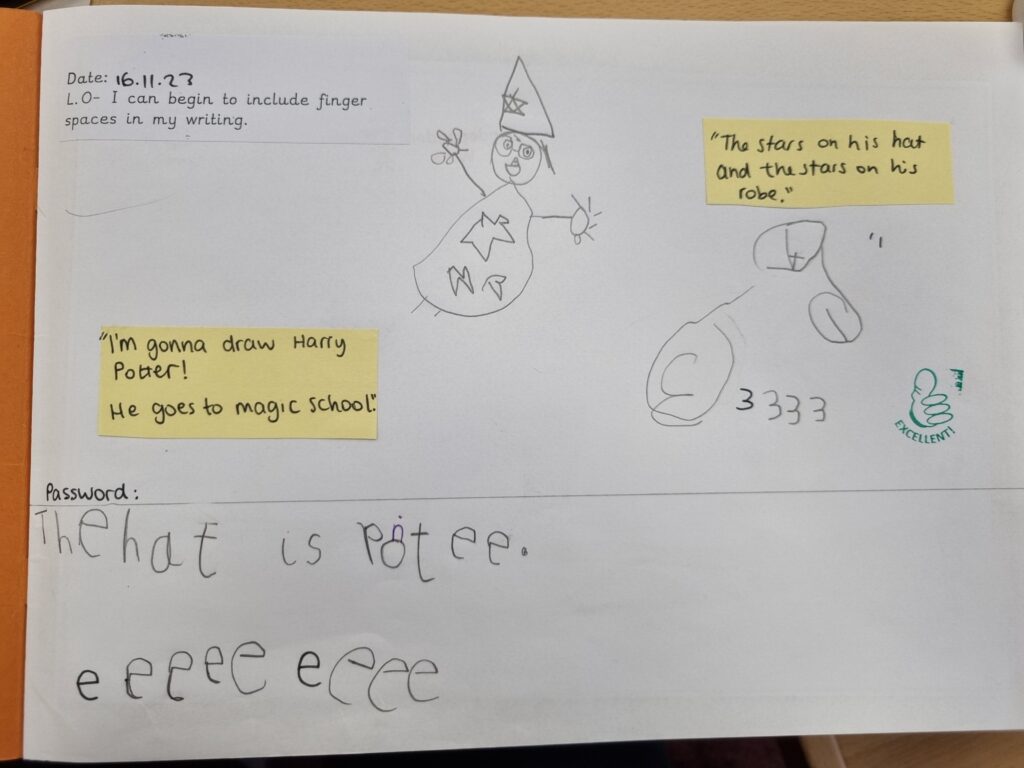 Date: 16.11.23
L.O- I can begin to include finger
spaces in my writing.
"The stars on his hat
and the stars on his
robe."
"I'm gonna draw Harry
Potter!
He goes to magic school."
4
3 3 3 3
EXCELLENT!
Password:
The hat is pot ee.
e e e e e e e e e